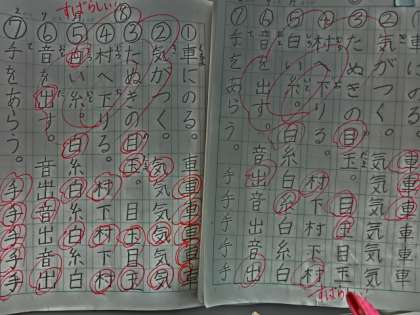 すばらしい。
①車にのる。車車車車車
②気がつく。気気気気気
③たぬきの目玉。目玉目玉
④村へ下りる。村下村下村
⑤白い糸。白糸白糸白糸白
⑥音を出す。音出音出音出
⑦手をあらう。手手手手手
車車車車車
②気がつく。気気気気気
③たぬきの目玉。目玉目玉
④村へ下りる。村下村下村
⑤白い糸。白糸白糸白糸白
⑥音を出す。音出音出音出
⑦手をあらう。手手手手手
すばらしい